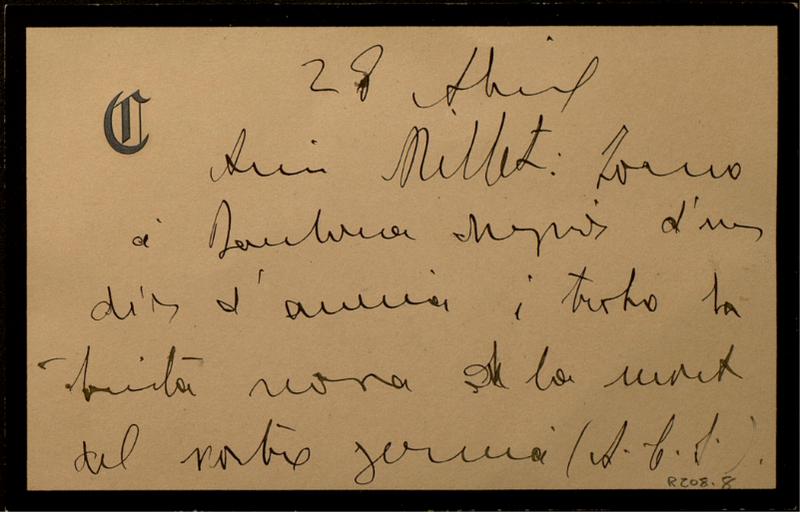 28 Abril
C
Amic Millet: Torno
á Barcelona després d'uns
dies d'ausencia i trobo la
trista nova de la mort
del vostre germá (A. C. S.).
R208.8